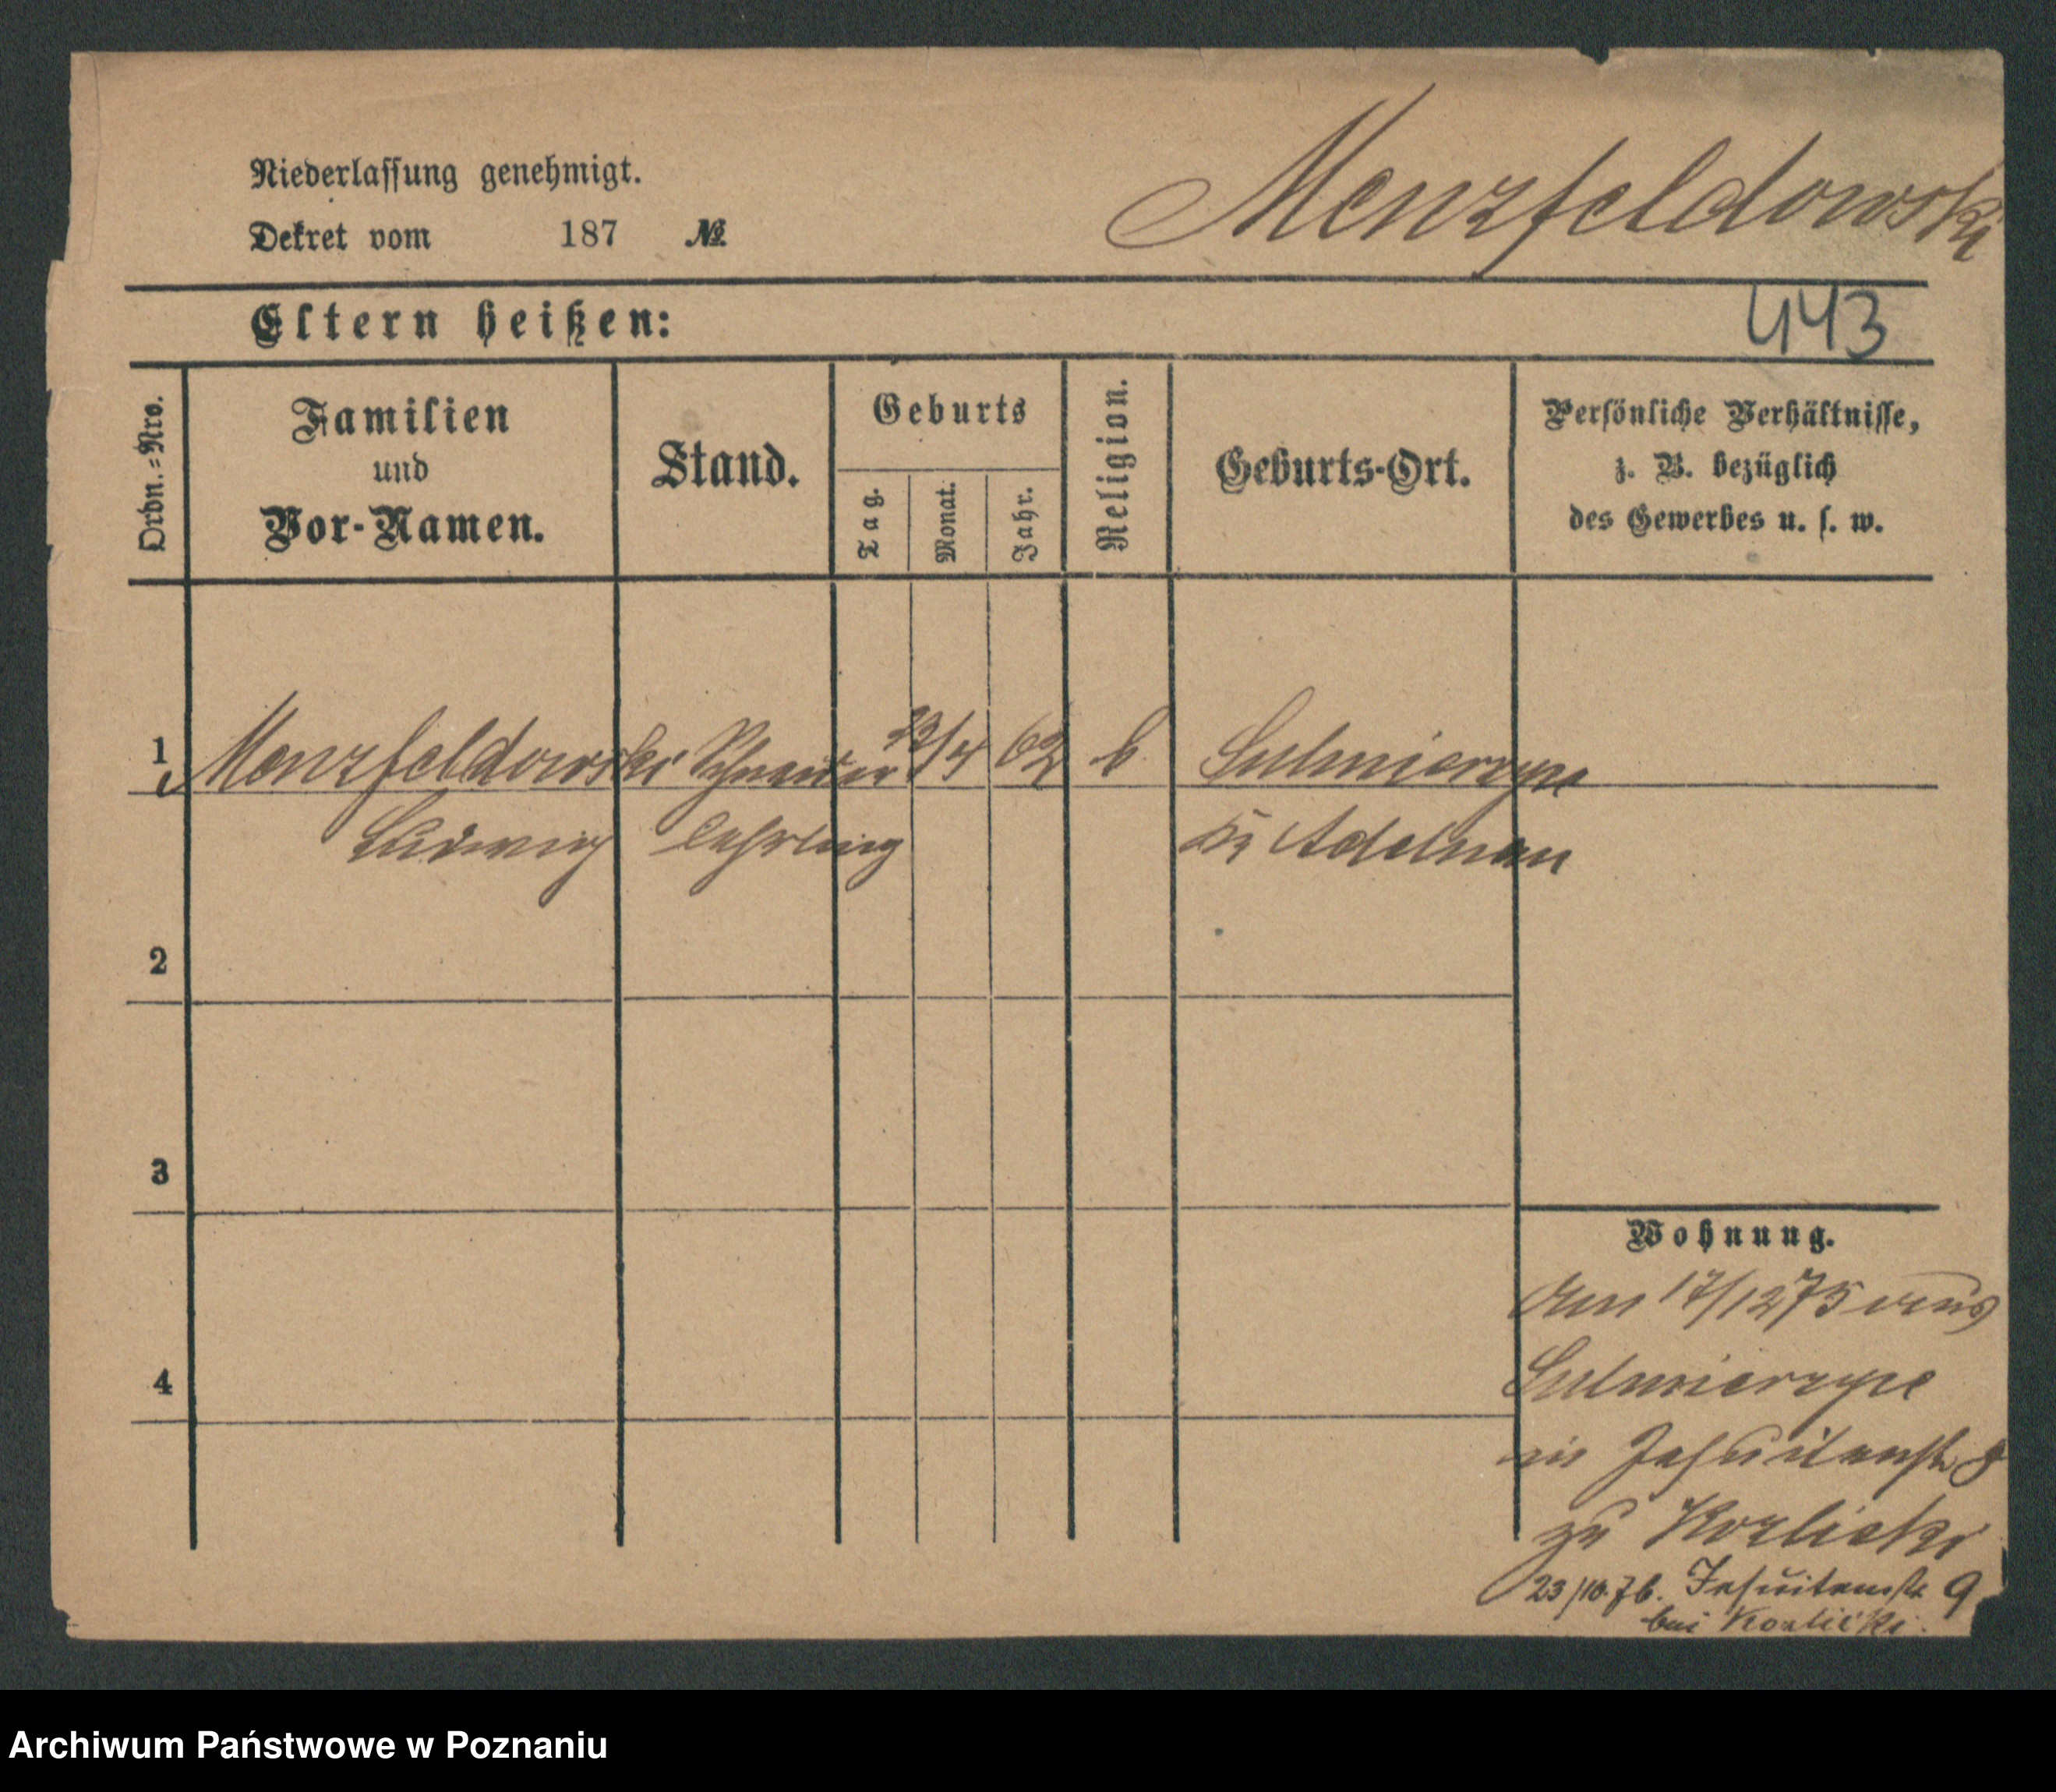 Niederlassung genehmigt.
Dekret vom 187 №
Menzfeldowski
Eltern heißen:
443
Ordn.=Nro.
Familien
und
Vor-Namen.
Stand.
Geburts
Tag.
Monat.
Jahr.
Religion.
Geburts-Ort.
Persönliche Verhältnisse,
z. B. bezüglich
des Gewerbes u. s. w.
1 Menzfeldowski Schneider /4 62 k Sulmierzyce
Ludwig lehrling Kr Adelnau
2
3
4
Wohnung.
Am 17/12 75 aus
Sulmierzyce
in Jesuitenstr 8
zu Kozlicki
23/10.76. Jesuitenstr 9
bei Kozlicki.
Archiwum Państwowe w Poznaniu